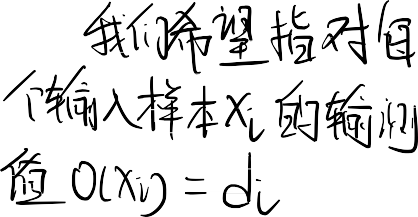 我们希望指对每
个输入样本xᵢ的输测
值O(xᵢ) = dᵢ